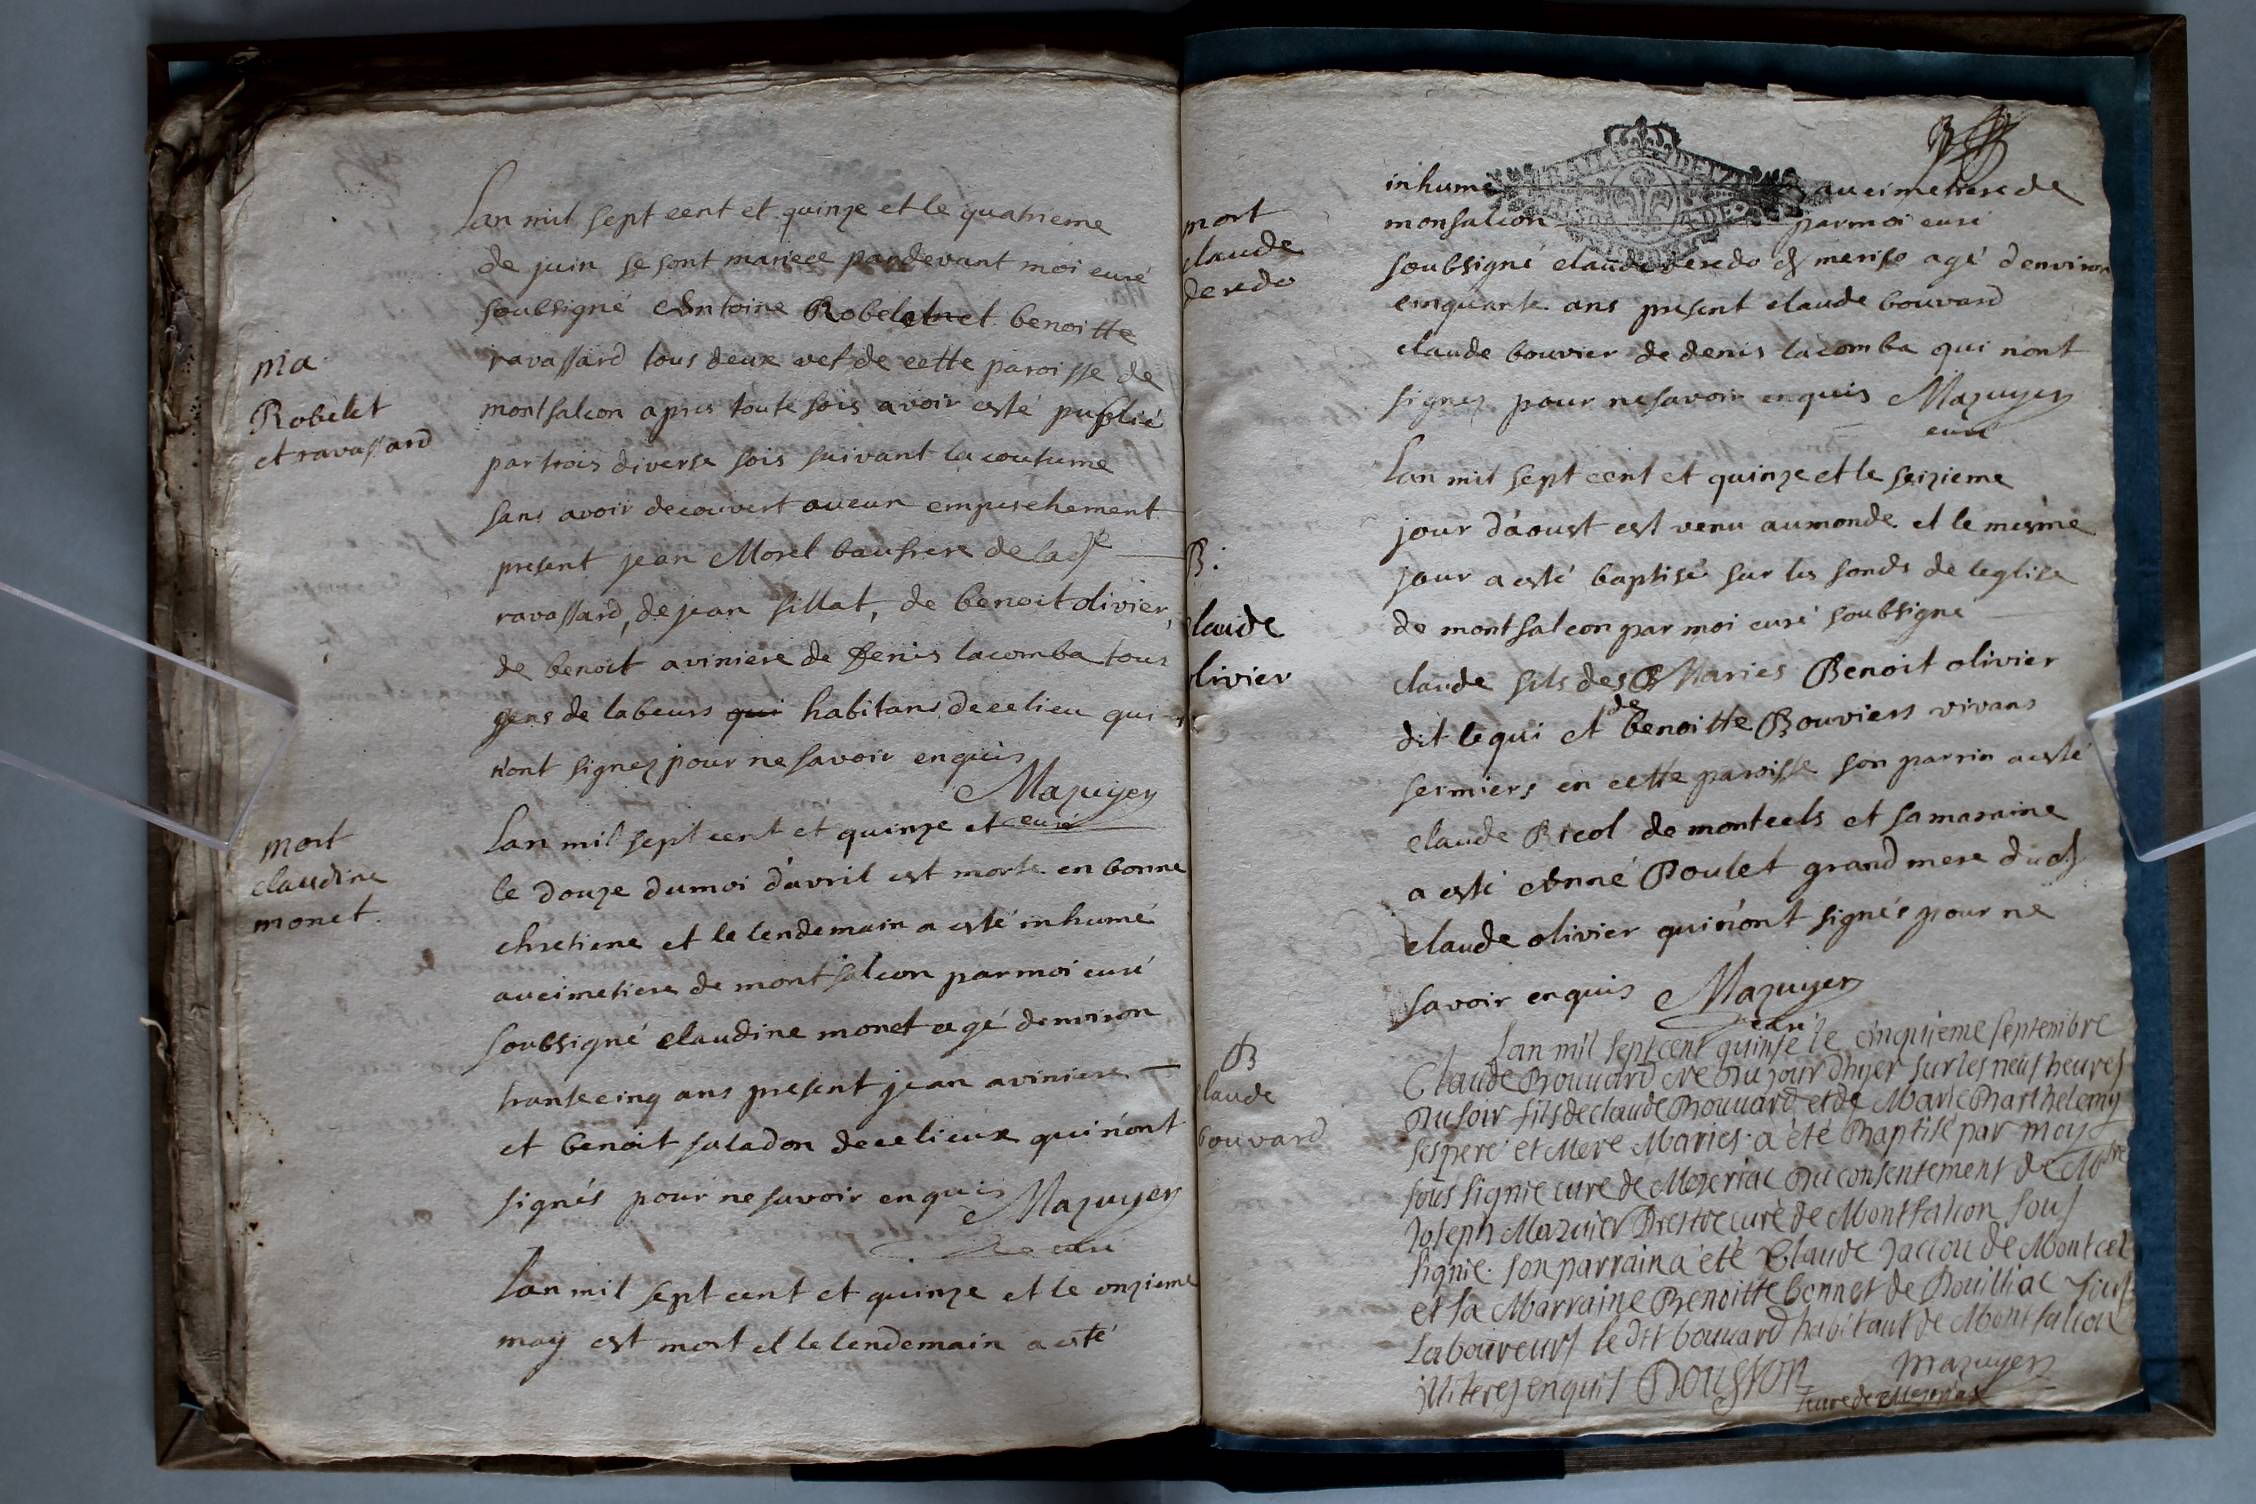 Lan mil sept cent et quinze et le quatrieme
de juin se sont mariece pardevant moi curé
soubsigné Antoine Robelet et benoitte
ravassard tous deux vef de cette paroisse de
montfalcon apres toute fois avoir esté publié
par trois diverse fois suivant la coutume
sans avoir decouvert aucun empeschement
present jean Morel baufrere de lad
ravassard, de jean fillat, de benoit olivier,
de benoit aviniere de Denis lacomba tous
gens de labeurs qui habitans de ce lieu qui
n'ont signez pour ne savoir enquis
Mazuyer
curé
ma
Robelet
et ravassard
Lan mil sept cent et quinze et
le douze du moi d'avril est morte en bonne
chretiene et le lendemain a esté inhumé
au cimetiere de montfalcon par moi curé
soubsigné claudine monet agé denviron
trante cinq ans present jean aviniere
et benoit saladon de ce lieux qui n'ont
signés pour ne savoir enquis Mazuyer
curé
mort
claudine
monet.
Lan mil sept cent et quinze et le onzieme
may est mort et le lendemain a esté
inhumé au cimetiere de
monfalcon par moi curé
soubsigné claude deredo de agé denviron
cinquante ans present claude bouvard
claude bouvier de denis lacomba qui n'ont
signez pour ne savoir enquis Mazuyer
curé
mort
claude
deredo
Lan mil sept cent et quinze et le seizieme
jour d'aoust est venu au monde et le mesme
jour a esté baptisé sur les fonds de leglise
de montfalcon par moi curé soubsigné
claude fils des Maries Benoit olivier
dit lequi et de benoitte Bouviers vivans
fermiers en cette paroisse son parrin a esté
claude Bicol de montcels et sa maraine
a esté Anné Poulet grand mere dud
claude olivier qui n'ont signés pour ne
savoir enquis Mazuyer
curé
B:
laude
livier
Lan mil sept cent quinse le cinquieme septembre
Claude Bouvard né du jour d'hyer sur les neuf heures
du soir fils de claude Bouvard et de Marie Barthelemy
ses pere et Mere Maries a été Baptisé par moy
sous signie curé de Mezeriac du consentement de Mre
Joseph Mazuier Prestre curé de Montfalcon sous
signie. son parrain a été Claude Jaccou de Montcet
et sa Marraine Benoitte bonnet de Pouilliac tous
Laboureurs le dit bouvard habitant de Montfalcon
illiteres enquis Dousson Mazuyer
curé de Mezeriat
B
laude
bouvard